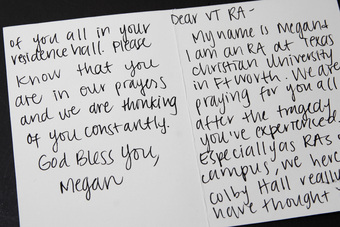 Dear VT RA -
My name is Megan &
I am an RA at Texas
Christian University
in Ft Worth. We are
praying for you all
after the tragedy
you've experienced.
Especially as RAs
campus, we here
Colby Hall really
have thought
of you all in your
residence hall. Please
know that you
are in our prayers
and we are thinking
of you constantly.
God Bless You,
Megan